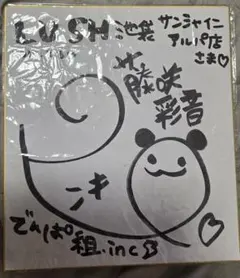 LUSH 池袋
サンシャイン
アルパ店
さま♡
藤咲
彩音
でんぱ組.inc